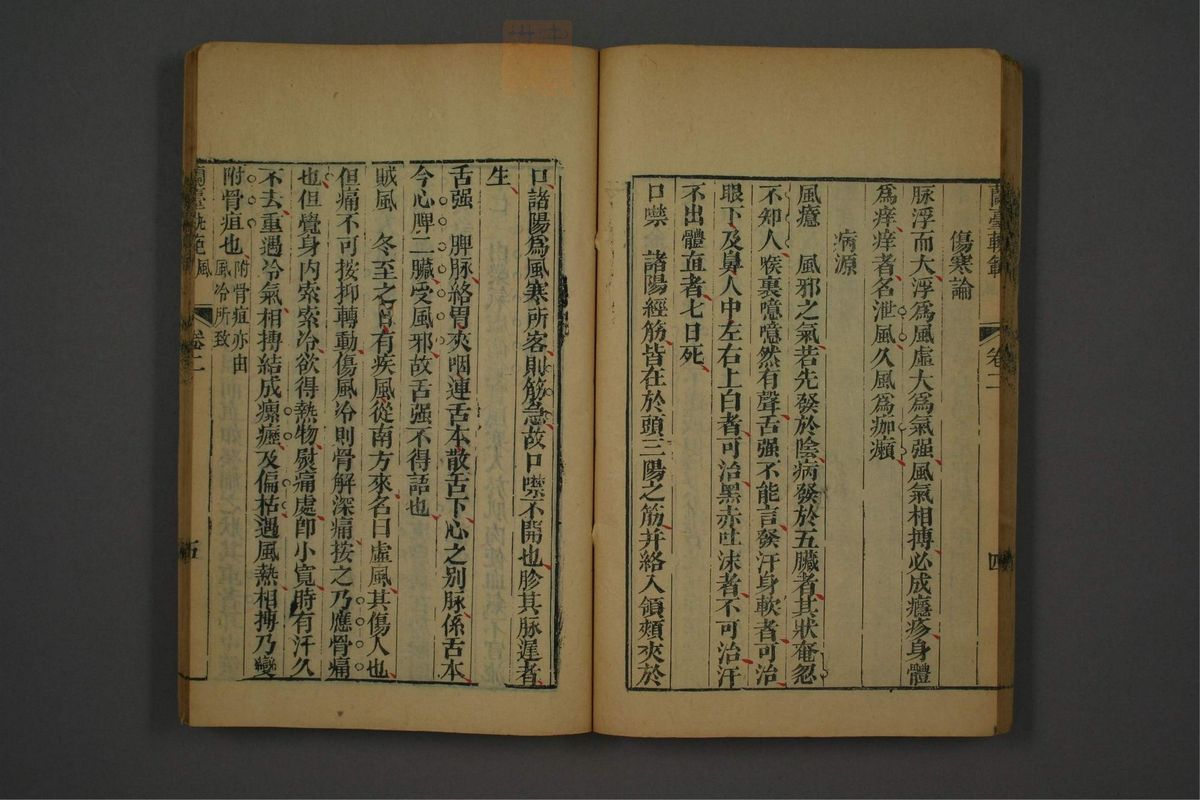 蘭臺軌範
卷二
四
傷寒論
脉浮而大浮爲風虛大爲氣强風氣相搏必成癮疹身體
爲痒痒者名泄風久風爲痂癩
病源
風癔　風邪之氣若先發於陰病發於五臟者其狀奄忽
不知人喉裏噫噫然有聲舌强不能言發汗身軟者可治
眼下及鼻人中左右上白者可治黑赤吐沫者不可治汗
不出體直者七日死
口噤　諸陽經筋皆在於頭三陽之筋并絡入頷頰夾於
口諸陽爲風寒所客則筋急故口噤不開也胗其脉遲者
生
舌强　脾脉絡胃夾咽連舌本散舌下心之别脉係舌本
今心脾二臟受風邪故舌强不得語也
賊風　冬至之日有疾風從南方來名曰虛風其傷人也
但痛不可按抑轉動傷風冷則骨解深痛按之乃應骨痛
也但覺身内索索冷欲得熱物熨痛處卽小寬時有汗久
不去重遇冷氣相搏結成瘰癧及偏枯遇風熱相搏乃變
附骨疽也附骨疽亦由
風冷所致
蘭臺軌範
風
卷二
五